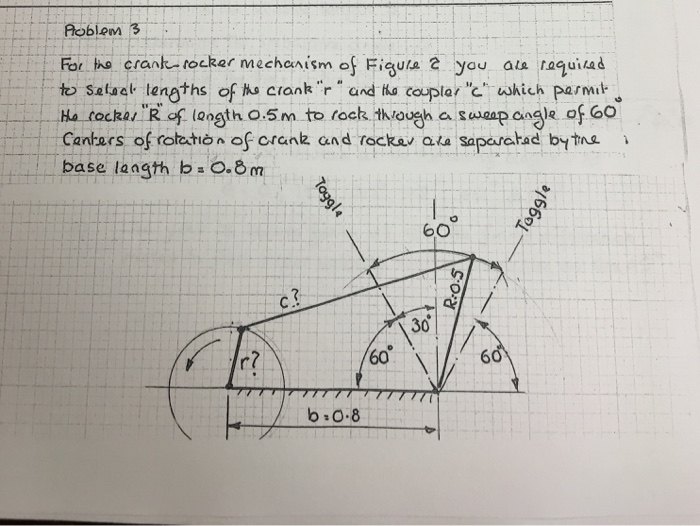 Problem 3
For the crank-rocker mechanism of Figure 2 you are required
to select lengths of the crank "r" and the coupler "c" which permit
the rocker "R" of length 0.5m to rock through a sweep angle of 60°
Centers of rotation of crank and rocker are separated by the
base length b = 0.8m
Toggle
60°
Toggle
c?
R:0.5
30°
r?
60°
60°
b:0.8